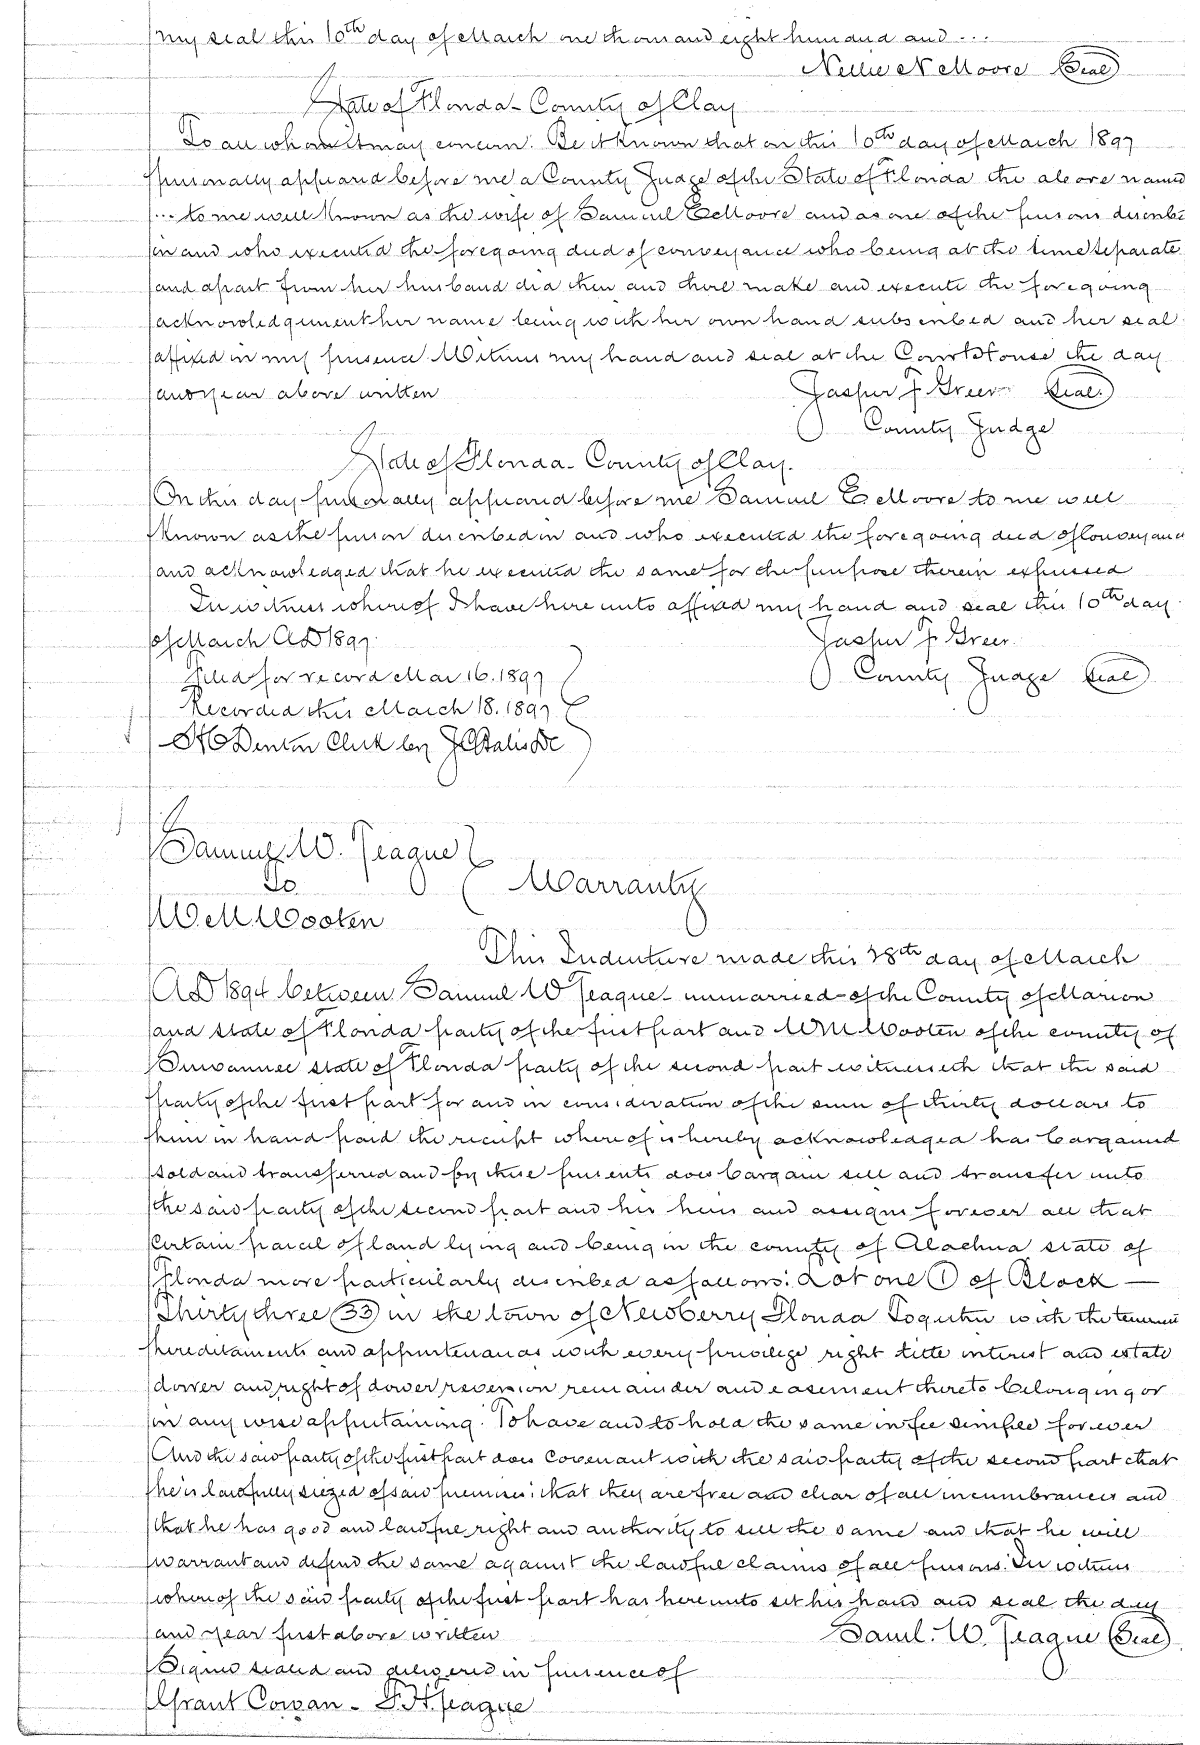 my seal this 10th day of March one thousand eight hundred and ...
Nellie N Moore Seal
State of Florida - County of Clay
To all whom it may concern: Be it known that on this 10th day of March 1897
personally appeared before me a County Judge of the State of Florida the above named
... to me well known as the wife of Samuel E Moore and as one of the persons describe
in and who executed the foregoing deed of conveyance who being at the time separate
and apart from her husband did then and there make and execute the foregoing
acknowledgement her name being with her own hand subscribed and her seal
affixed in my presence Witness my hand and seal at the Court House the day
and year above written Jasper F Greer Seal.
County Judge
State of Florida - County of Clay.
On this day personally appeared before me Samuel E Moore to me well
known as the person described in and who executed the foregoing deed of conveyance
and acknowledged that he executed the same for the purpose therein expressed
In witness whereof I have here unto affixed my hand and seal this 10th day
of March AD 1897. Jasper F Greer.
Filed for record Mar 16. 1897 County Judge Seal
Recorded this March 18. 1897
Denton Clerk by DC
Samuel W. Teague
To Warranty
W. M. Wooten
This Indenture made this 28th day of March
AD 1894 between Samuel W Teague - unmarried - of the County of Marion
and state of Florida party of the first part and W M Wooten of the county of
Suwannee state of Florida party of the second part witnesseth that the said
party of the first part for and in consideration of the sum of thirty dollars to
him in hand paid the receipt where of is hereby acknowledged has bargained
sold and transferred and by these presents does bargain sell and transfer unto
the said party of the second part and his heirs and assigns forever all that
certain parcel of land lying and being in the county of Alachua state of
Florida more particularly described as follows: Lot one (1) of Block —
Thirty three (33) in the town of Newberry Florida Together with the tenements
hereditaments and appurtenances with every privilege right title interest and estate
dower and right of dower reversion remainder and easement thereto belonging or
in any wise appertaining: To have and to hold the same in fee simple forever
And the said party of the first part does covenant with the said party of the second part that
he is lawfully siezed of said premises: that they are free and clear of all incumbrances and
that he has good and lawful right and authority to sell the same and that he will
warrant and defend the same against the lawful claims of all persons: In witness
whereof the said party of the first part has here unto set his hand and seal the day
and year first above written Saml. W. Teague Seal
Signed sealed and delivered in presence of
Grant Cowan - F. H. Teague